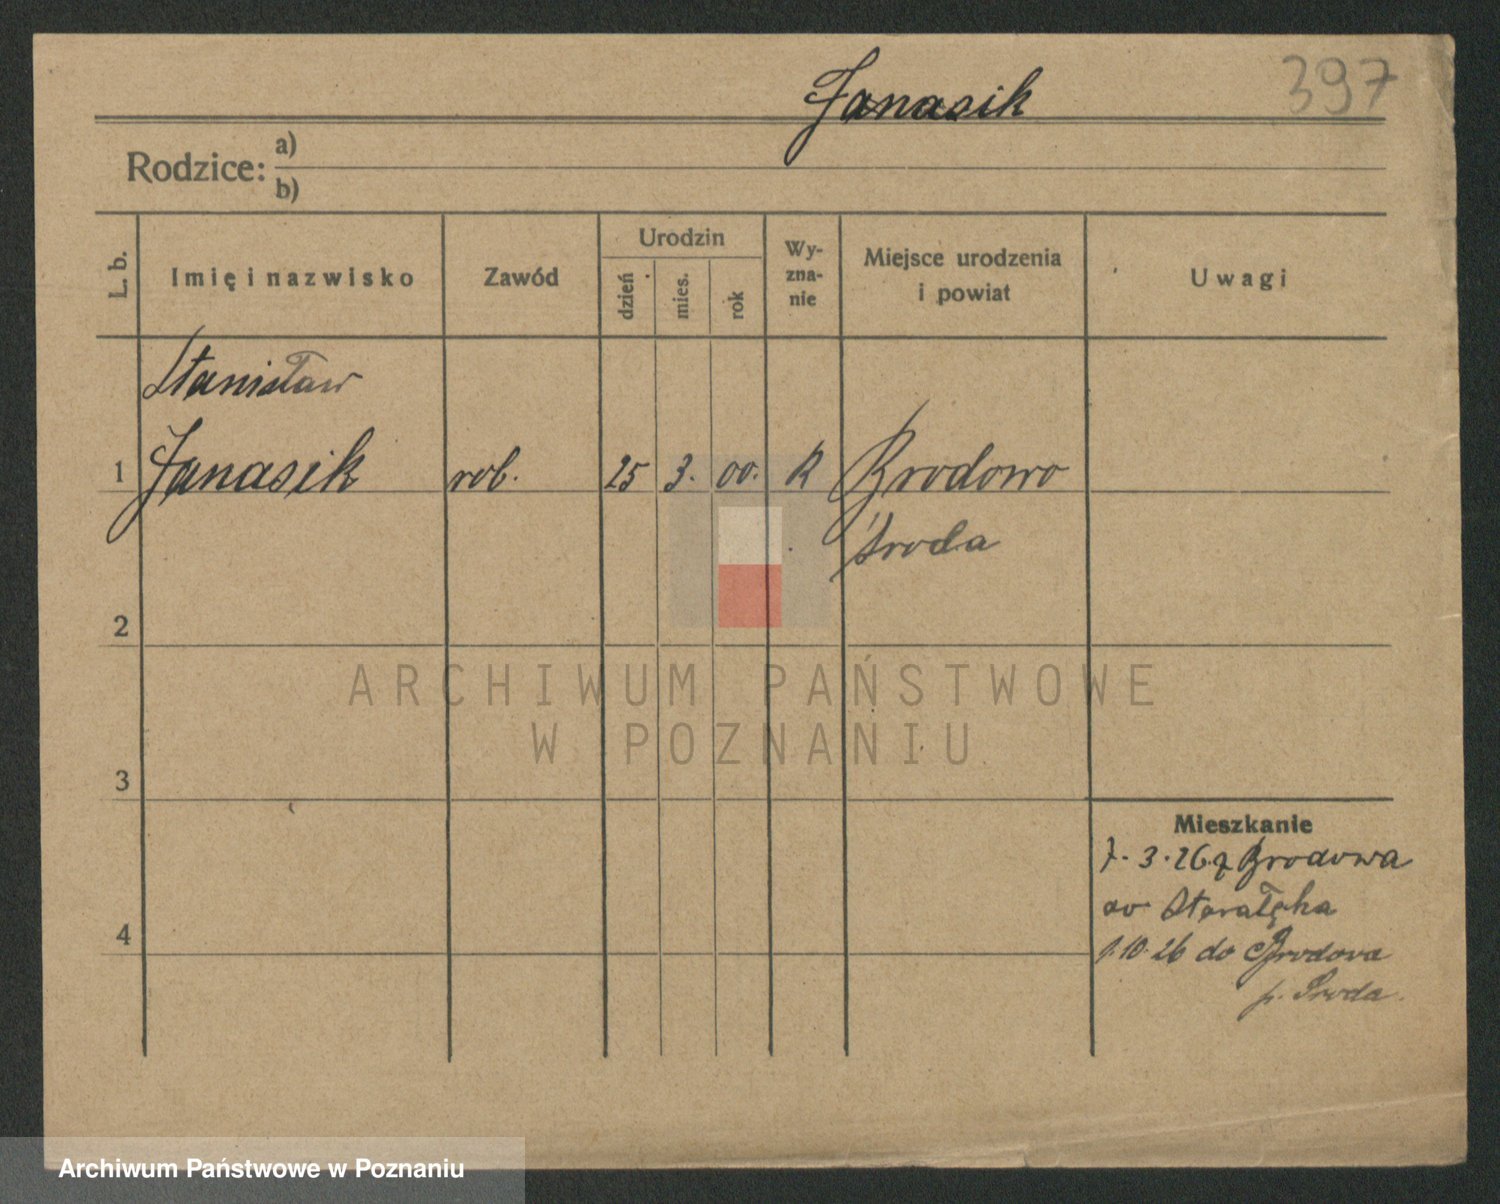 Janasik 397
Rodzice: a)
b)
L. b. Imię i nazwisko Zawód Urodzin dzień mies. rok Wy-zna-nie Miejsce urodzenia i powiat Uwagi
Stanisław
1 Janasik rob. 25 3. 00. R Brodowo
Środa
2
ARCHIWUM PAŃSTWOWE
W POZNANIU
3
Mieszkanie
7. 3. 26. z Brodowa
Starałęka
4
1.10.26 do Brodowa
p. Środa.
Archiwum Państwowe w Poznaniu